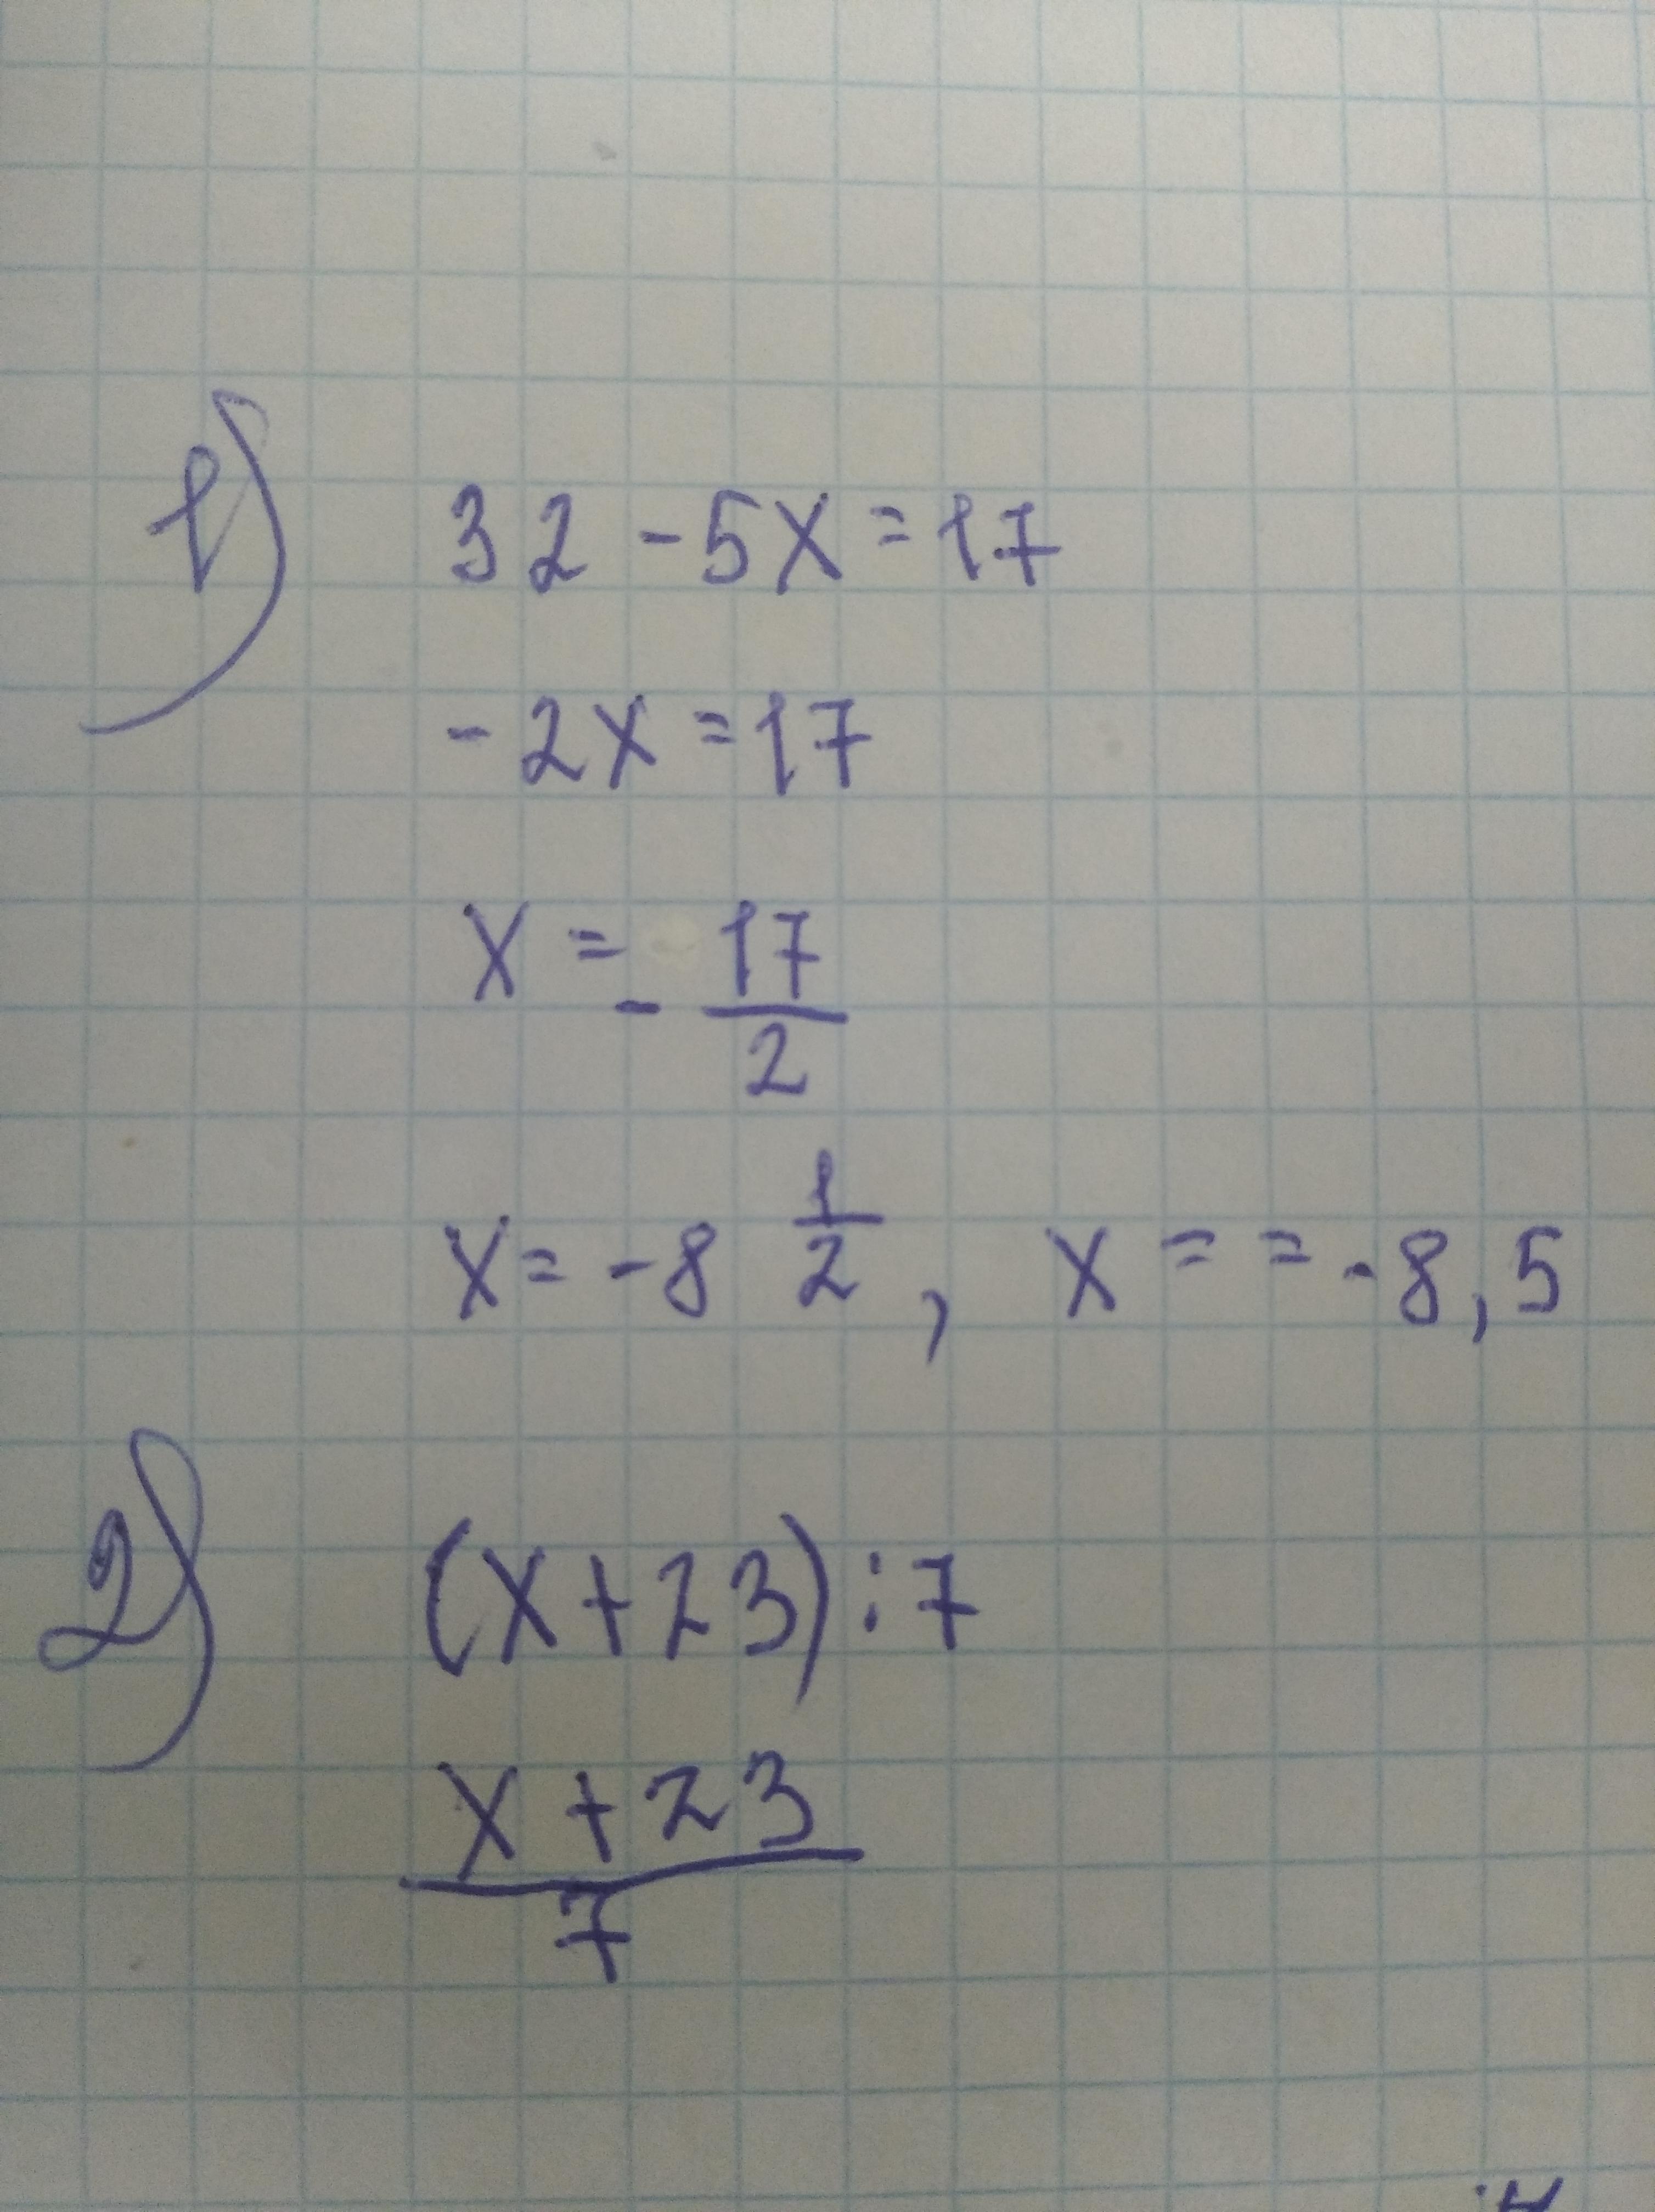 1) 32 - 5x = 17
- 2x = 17
x = - 17/2
x = -8 1/2, x = = -8,5
2) (x + 23) : 7
x + 23
7